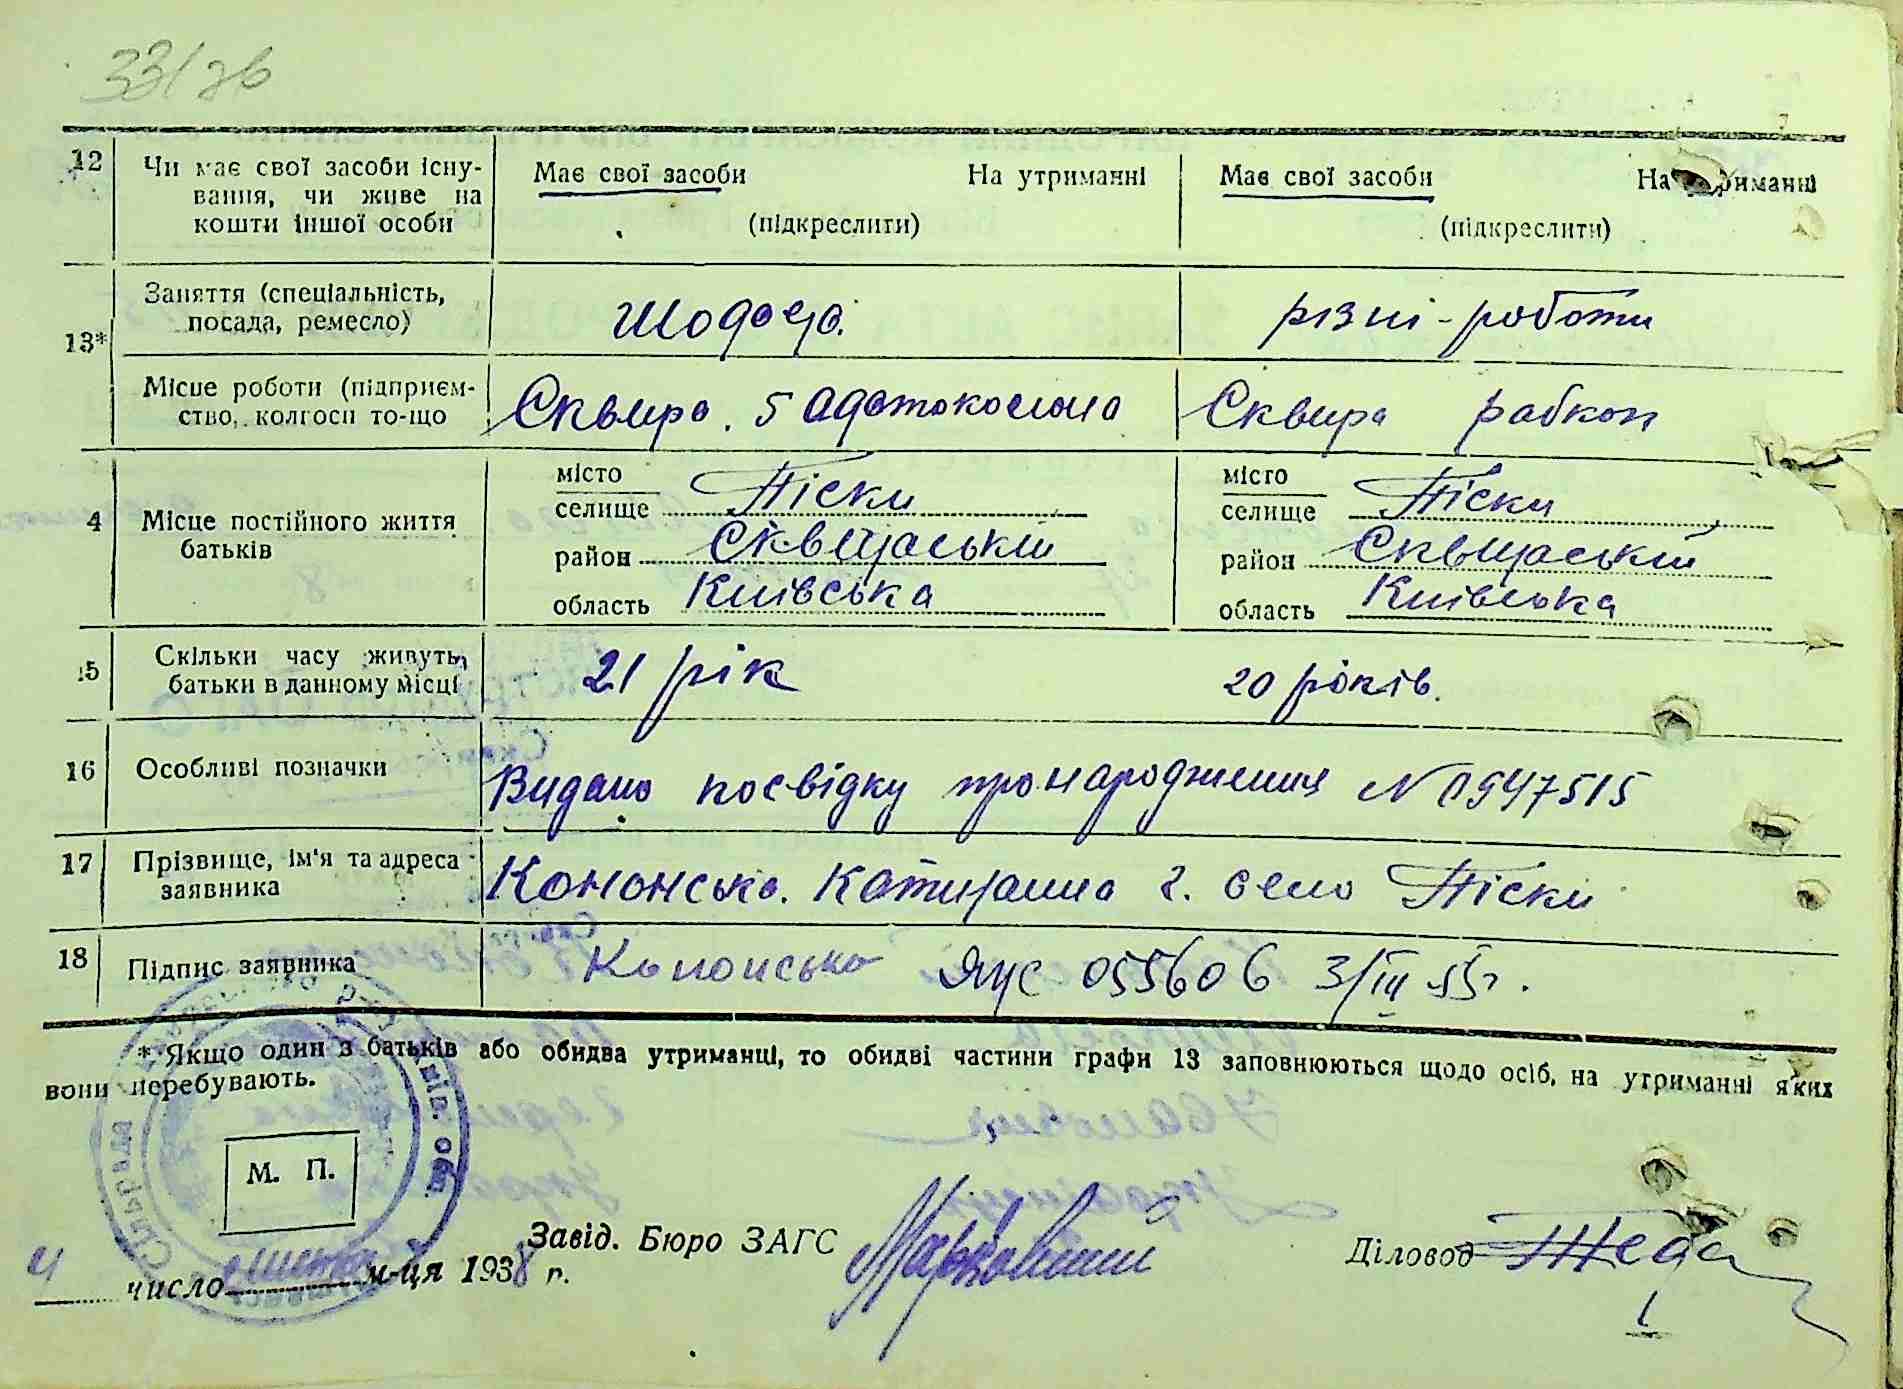 12 Чи має свої засоби існу-
вання, чи живе на
кошти іншої особи
Має свої засоби На утриманні
(підкреслити)
Має свої засоби На утриманні
(підкреслити)
13* Заняття (спеціальність,
посада, ремесло)
Шофера.
різні-роботи
Місце роботи (підприєм-
ство, колгосп то-що
Сквира. 5
Сквира рабкоп
4 Місце постійного життя
батьків
місто
селище Піски
район Сквирській
область Київська
місто
селище Піски
район Сквирській
область Київська
15 Скільки часу живуть
батьки в данному місці
21 рік
20 років.
16 Особливі позначки
Видано посвідку про народження N 0947515
17 Прізвище, ім'я та адреса
заявника
Кононська. Катирина г. село Піски
18 Підпис заявника
Кононська ЯУС 055606 3/III 55г.
* Якщо один з батьків або обидва утриманці, то обидві частини графи 13 заповнюються щодо осіб, на утриманні яких
вони перебувають.
М. П.
4 число м-ця 1938 р.
Завід. Бюро ЗАГС
Діловод